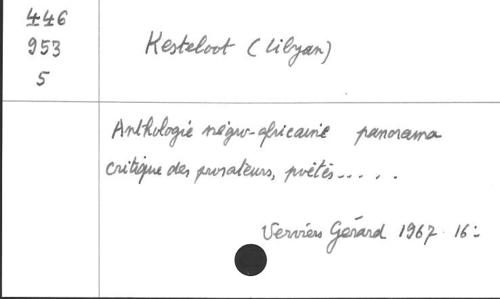 446
953
5
Kesteloot (Lilyan)
Anthologie négro-africaine panorama
critique des prosateurs, poètès.....
Verviers Gérard 1967. 16: